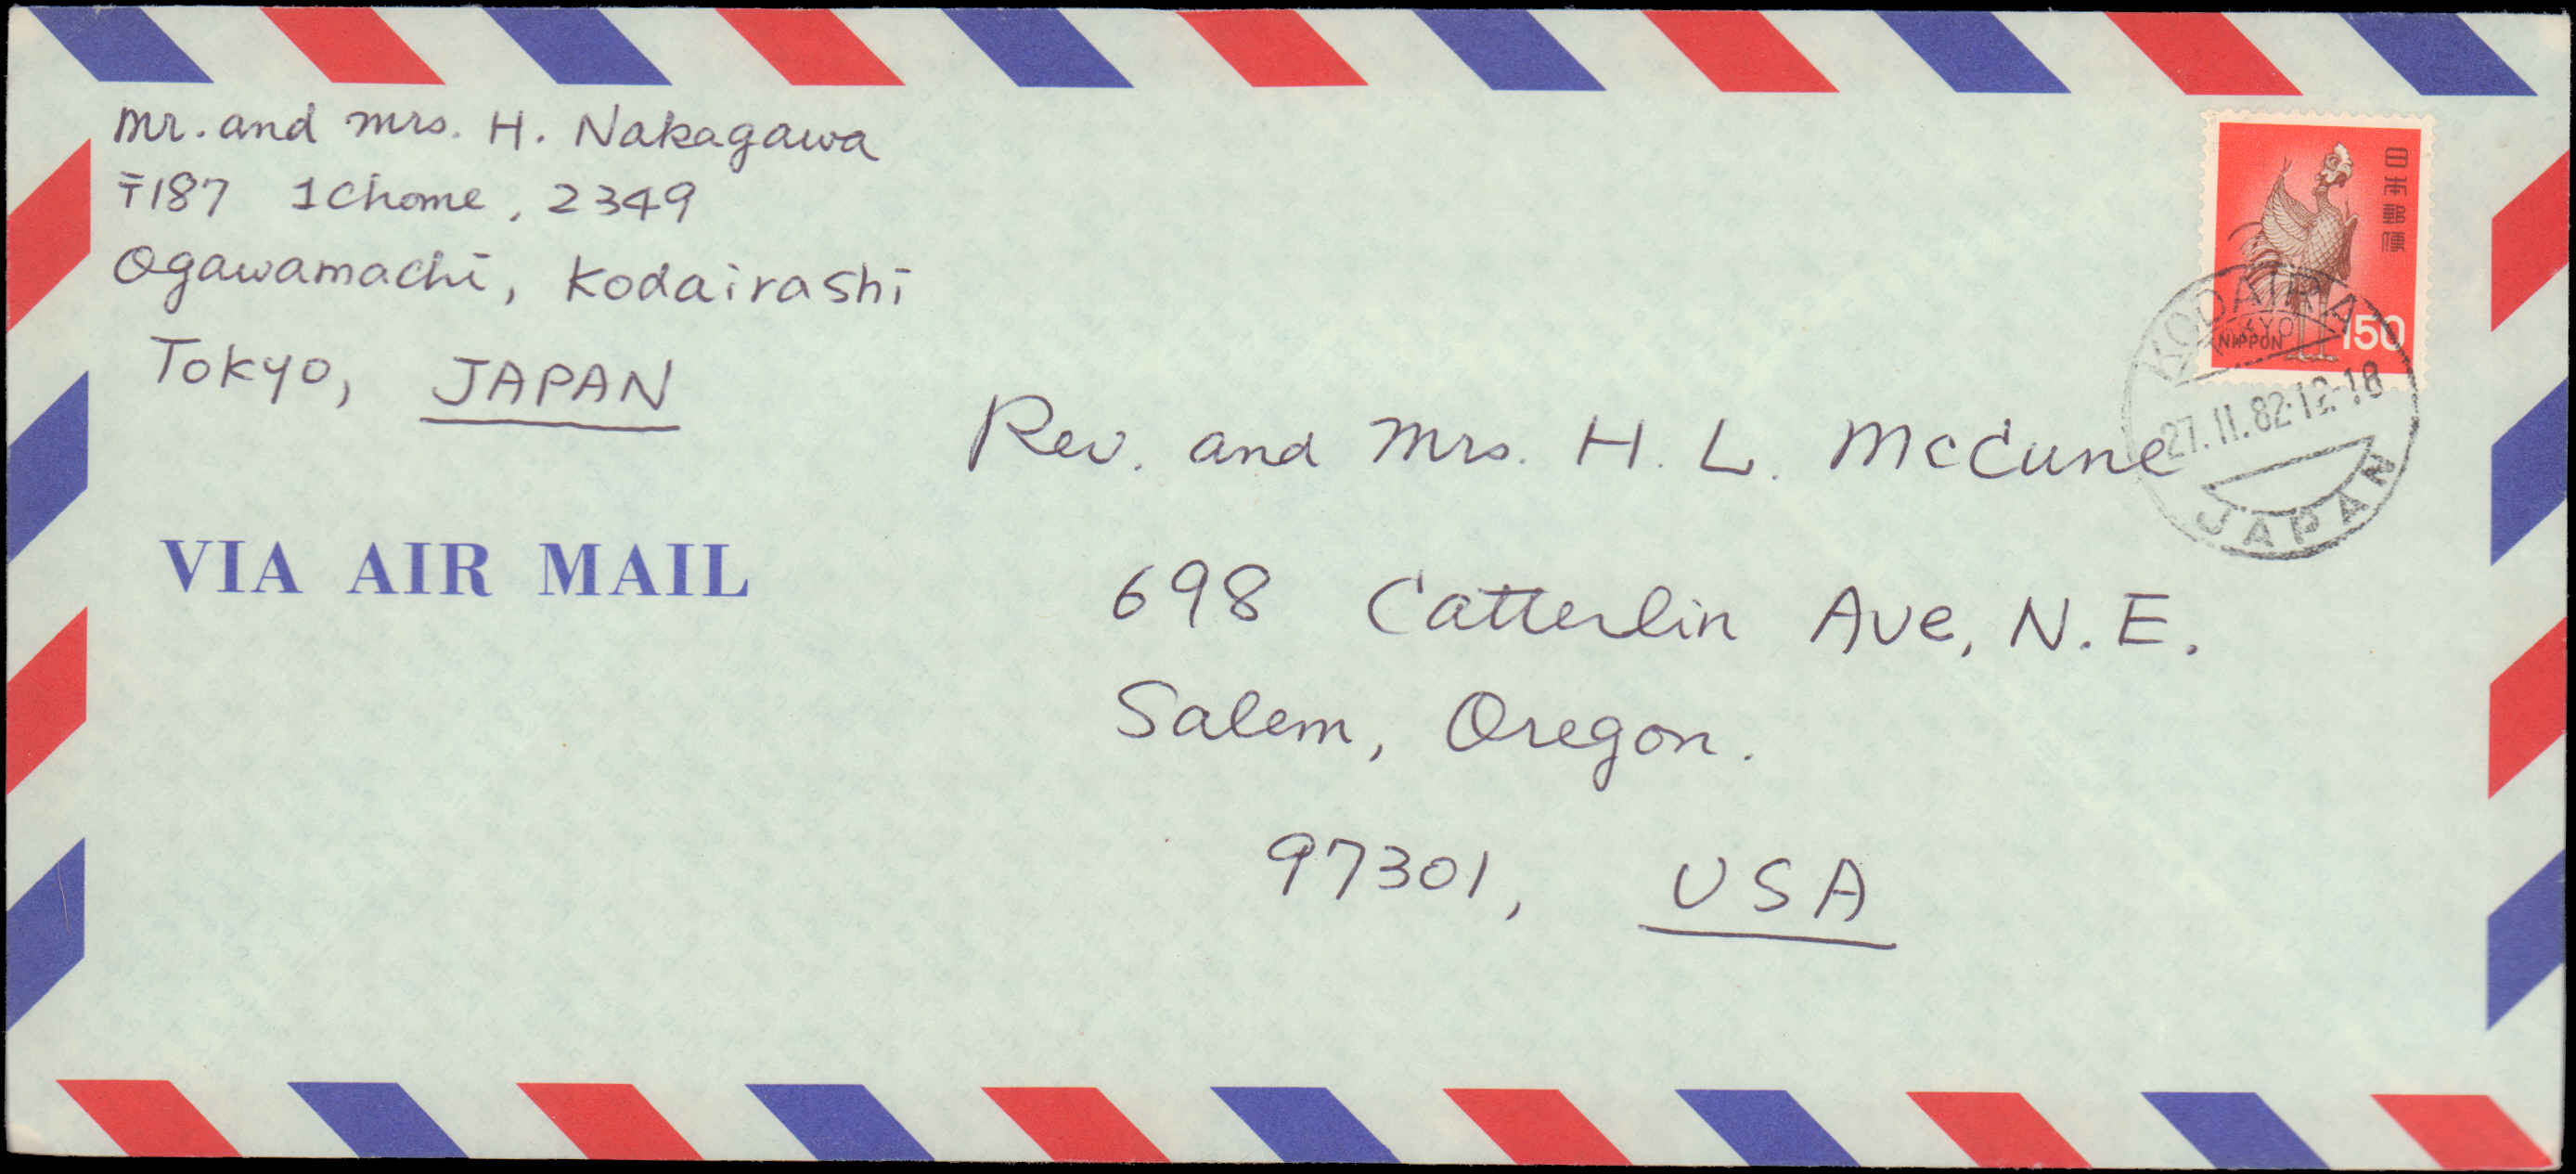 Mr. and Mrs. H. Nakagawa
〒187 1 Chome, 2349
Ogawamachi, Kodairashi
Tokyo, JAPAN
VIA AIR MAIL
日本郵便
150
NIPPON
KODAIRA
TOKYO
27.11.82.12-18
JAPAN
Rev. and Mrs. H. L. McCune
698 Catterlin Ave, N.E.
Salem, Oregon.
97301, USA